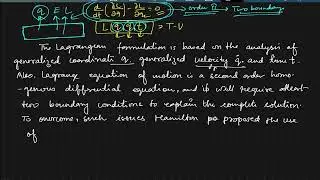 q E L d/dt(∂L/∂q̇) - ∂L/∂q = 0 → order 2 → Two boundary
L(q, q̇, t) = T-V
The Lagrangian formulation is based on the analysis of
generalized coordinate q, generalized velocity q̇, and time t.
Also, Lagrange equation of motion is a second order homo-
genous differential equation, and it will require atleast
two boundary conditions to explain the complete solution.
To overcome, such issues Hamilton proposed the use
of